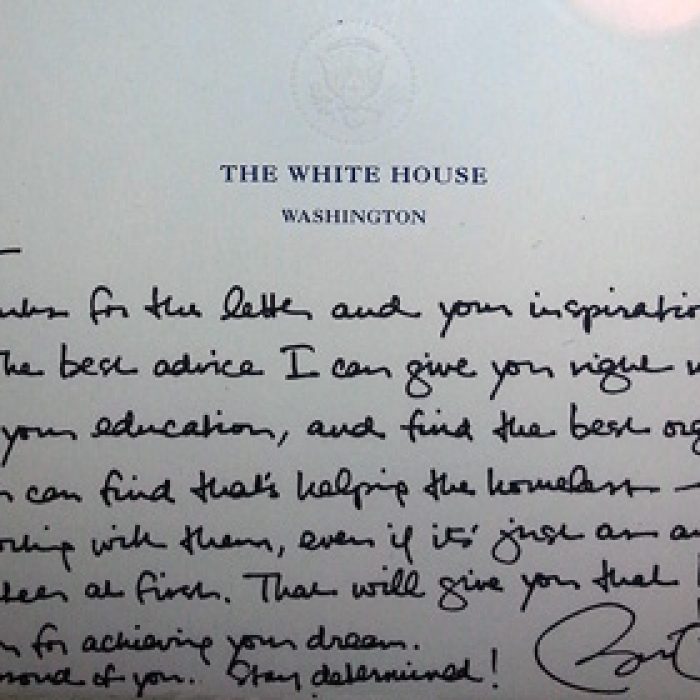 THE WHITE HOUSE
WASHINGTON
for the letter and your inspiratio
he best advice I can give you right
your education, and find the best org
can find that's helping the homeless —
orking with them, even if it's just as a
teer at first. That will give you that
n for achieving your dream.
roud of you. Stay determined!